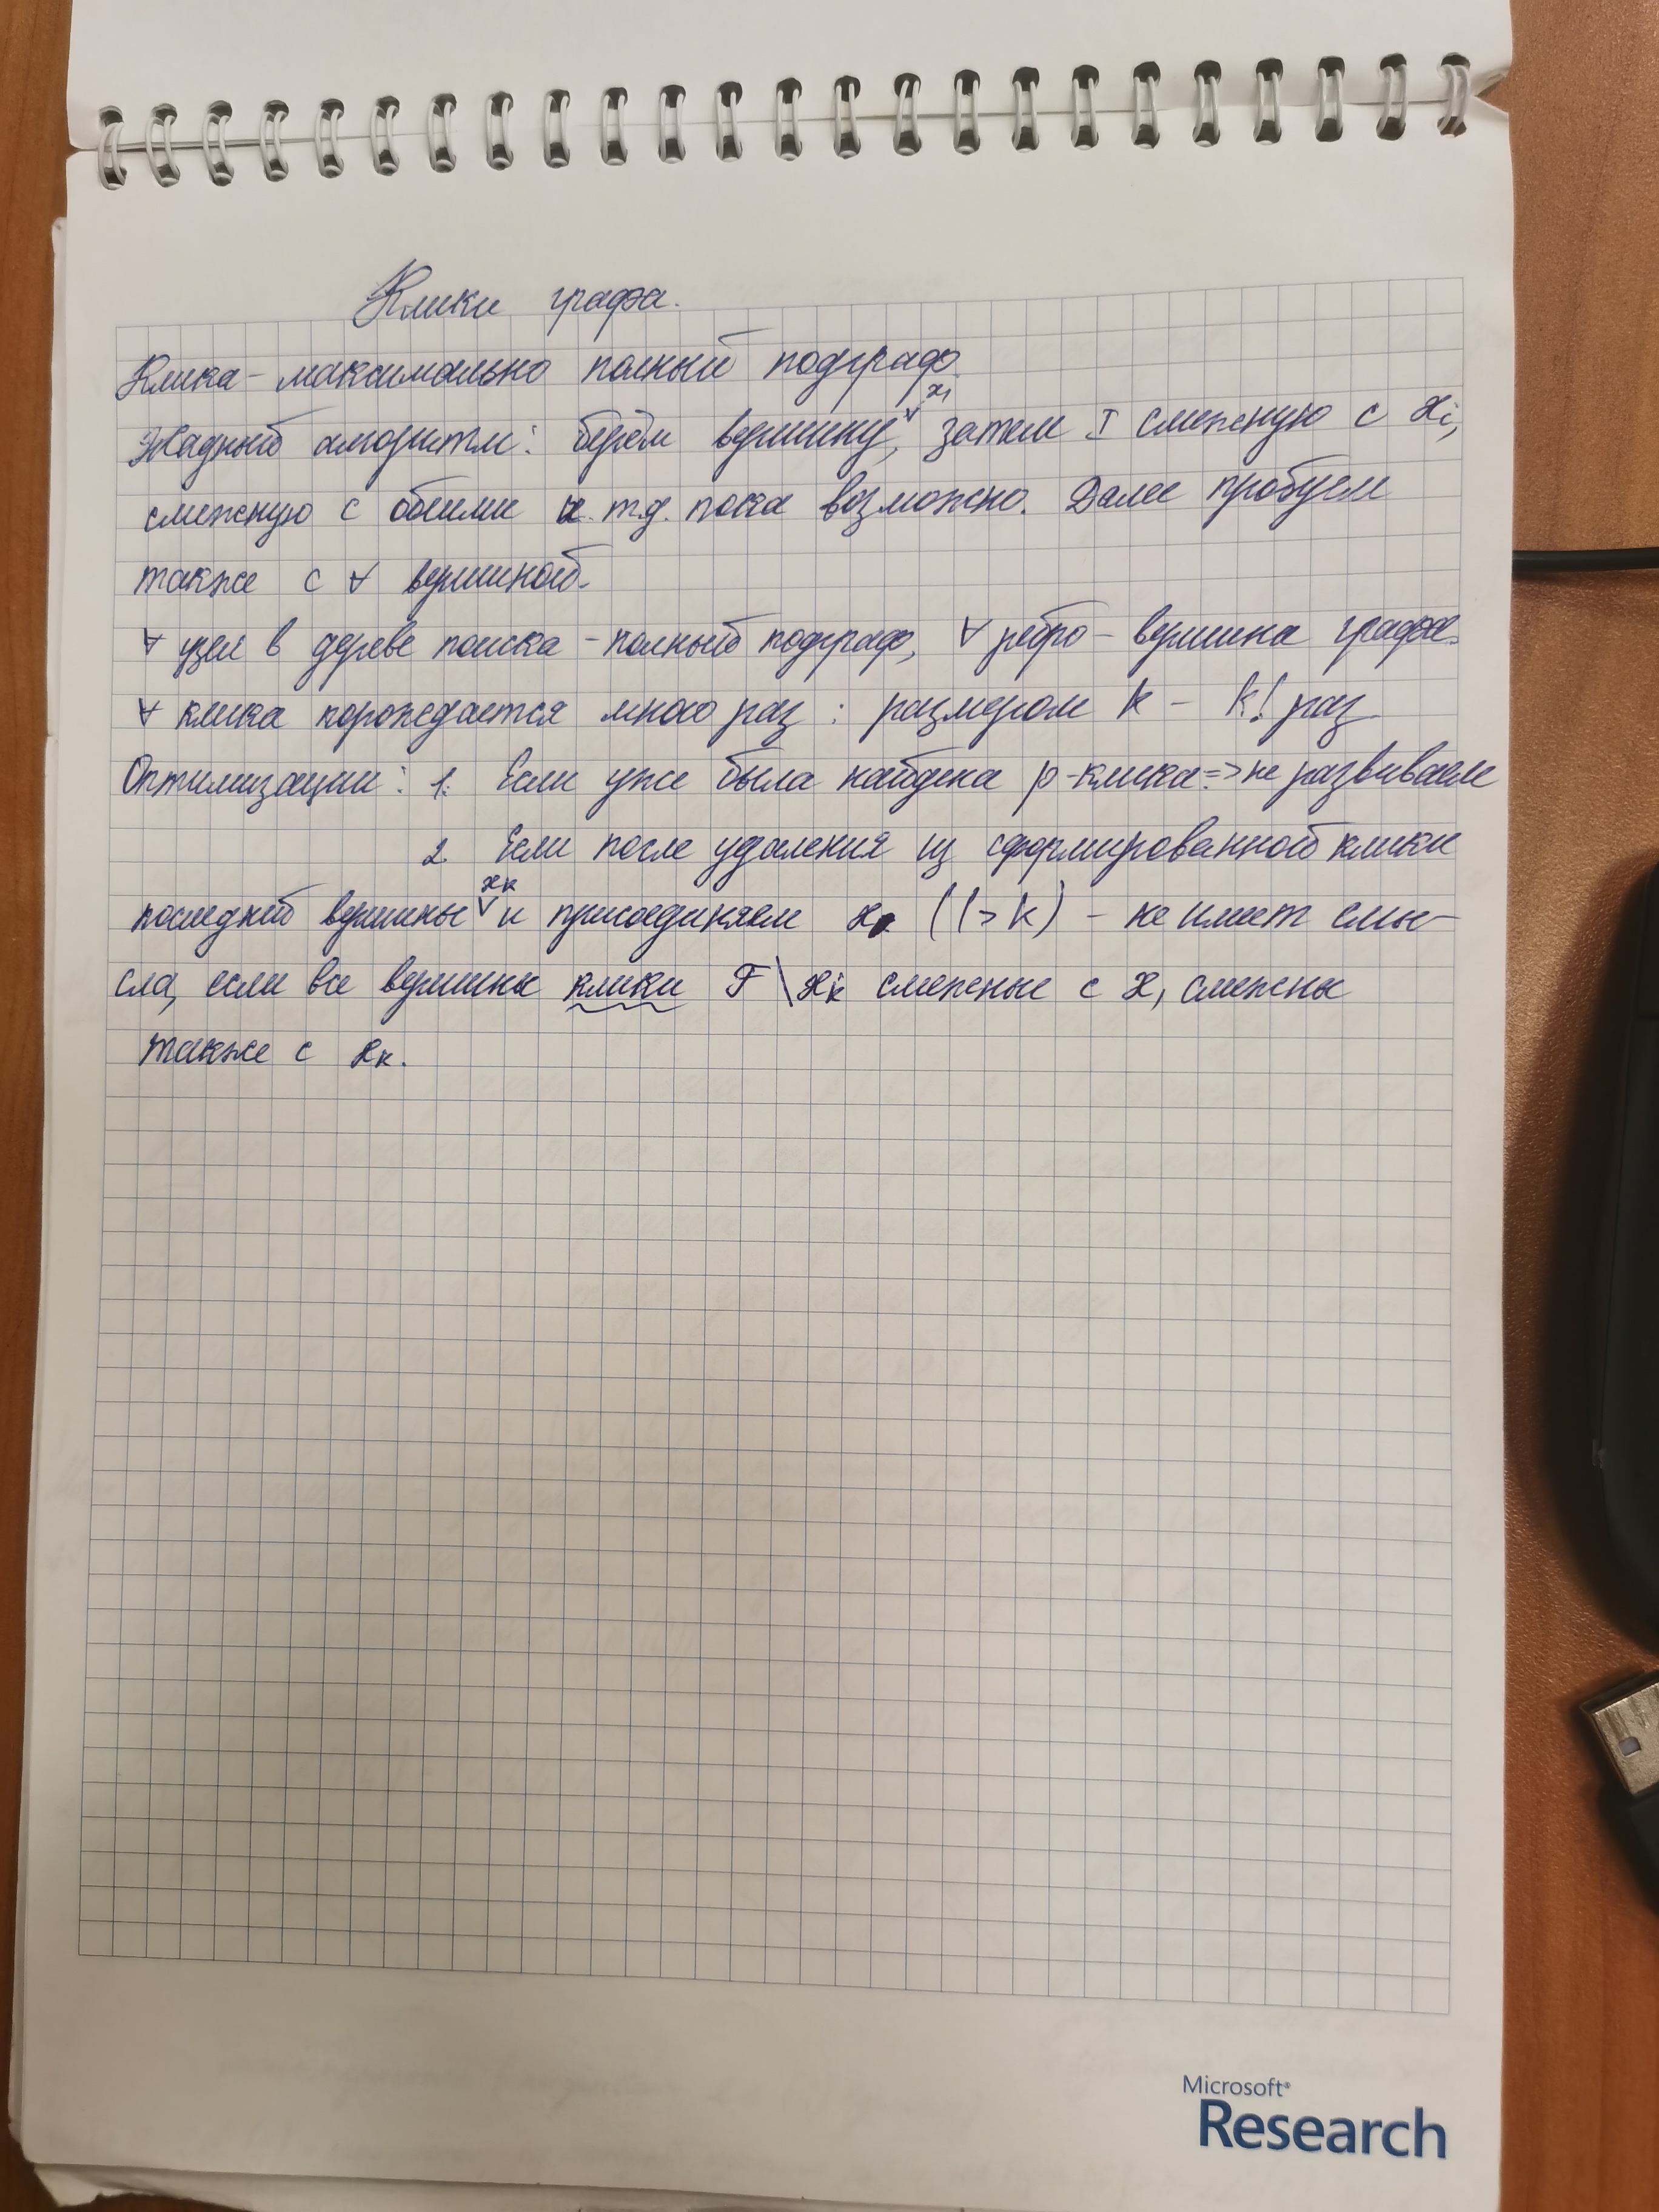 Клики графа.
Клика - максимально полный подграф.
Жадный алгоритм: берём вершину x₁, затем I смежную с xᵢ,
смежную с обеими и т.д. пока возможно. Далее пробуем
также с ∀ вершиной.
∀ узел в дереве поиска - полный подграф, ∀ ребро - вершина графа.
∀ клика порождается много раз : размером k - k! раз
Оптимизации : 1. Если уже была найдена p-клика => не развиваем
2. Если после удаления из сформированной клики
последней вершины xₖ и присоединяем x (l > k) - не имеет смы-
сла, если все вершины клики F \ xₖ смежные с x, смежны
также с xₖ.
Microsoft®
Research